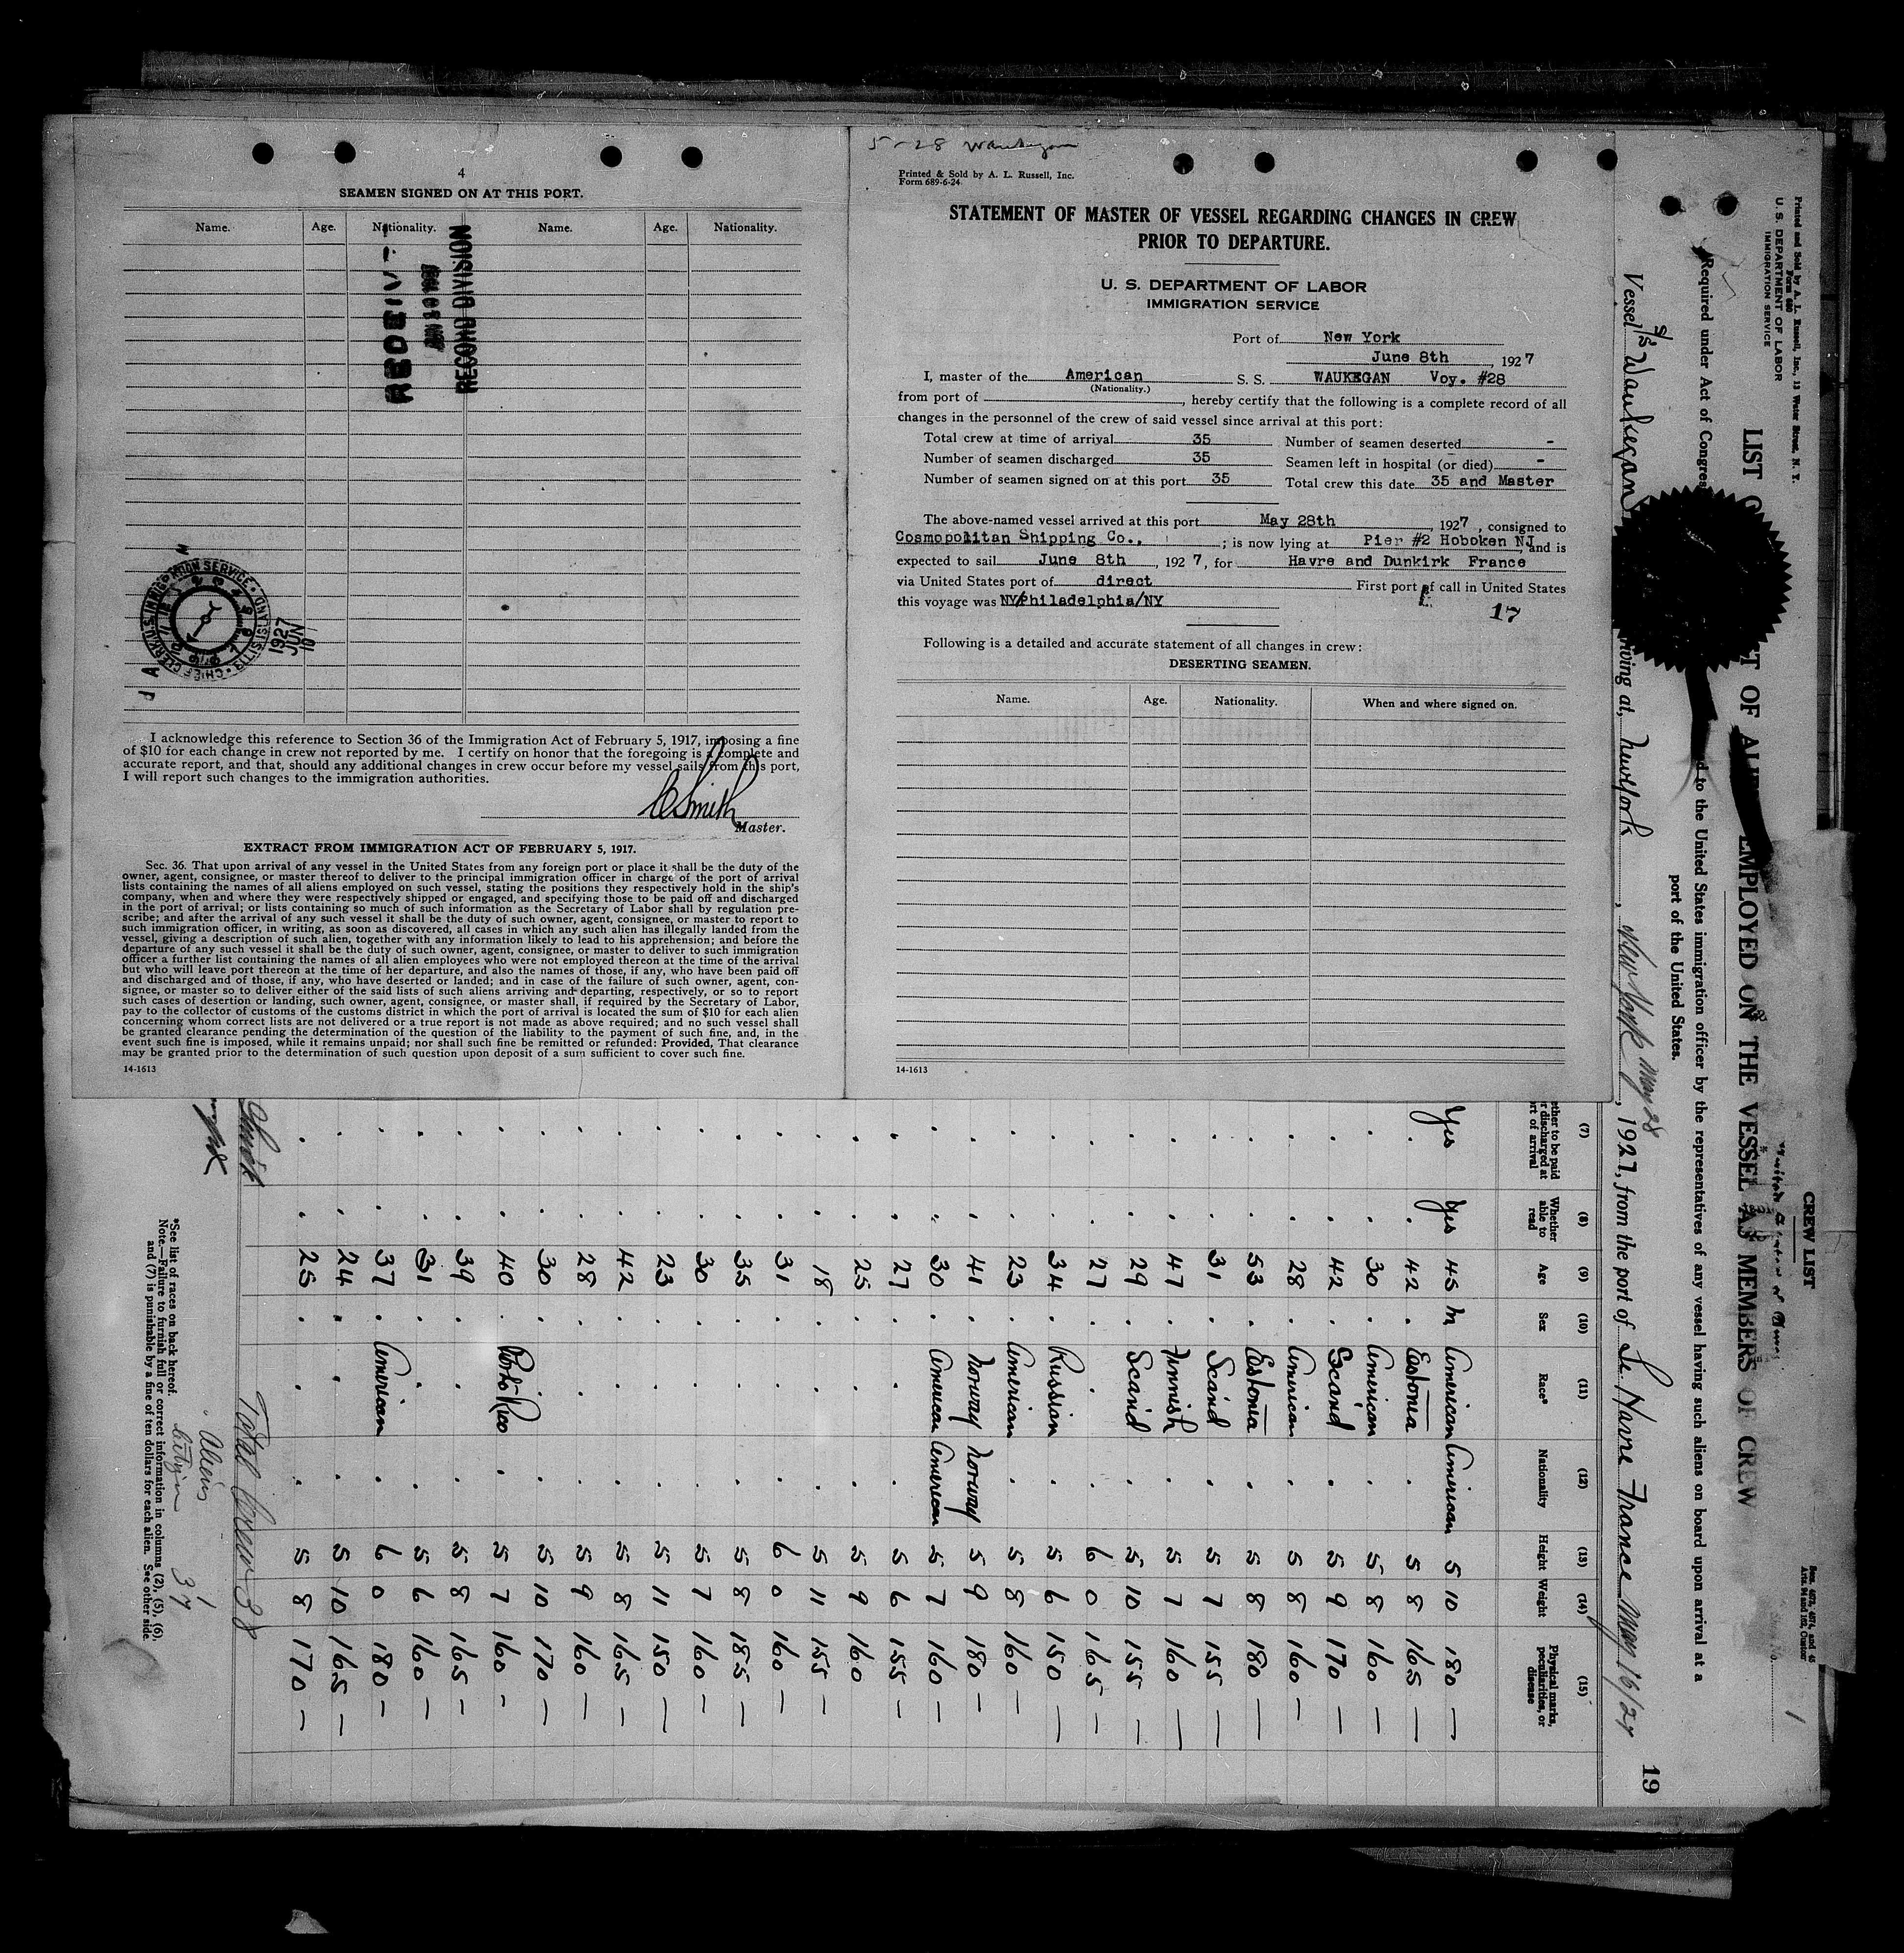 4
SEAMEN SIGNED ON AT THIS PORT.
Name. Age. Nationality. Name. Age. Nationality.
RECORD DIVISION
CHIEF CLERK U.S. IMMIGRATION SERVICE
1927
JUN
10
I acknowledge this reference to Section 36 of the Immigration Act of February 5, 1917, imposing a fine
of $10 for each change in crew not reported by me. I certify on honor that the foregoing is a complete and
accurate report, and that, should any additional changes in crew occur before my vessel sails from this port,
I will report such changes to the immigration authorities.
Smith
Master.
EXTRACT FROM IMMIGRATION ACT OF FEBRUARY 5, 1917.
Sec. 36. That upon arrival of any vessel in the United States from any foreign port or place it shall be the duty of the
owner, agent, consignee, or master thereof to deliver to the principal immigration officer in charge of the port of arrival
lists containing the names of all aliens employed on such vessel, stating the positions they respectively hold in the ship's
company, when and where they were respectively shipped or engaged, and specifying those to be paid off and discharged
in the port of arrival; or lists containing so much of such information as the Secretary of Labor shall by regulation pre-
scribe; and after the arrival of any such vessel it shall be the duty of such owner, agent, consignee, or master to report to
such immigration officer, in writing, as soon as discovered, all cases in which any such alien has illegally landed from the
vessel, giving a description of such alien, together with any information likely to lead to his apprehension; and before the
departure of any such vessel it shall be the duty of such owner, agent, consignee, or master to deliver to such immigration
officer a further list containing the names of all alien employees who were not employed thereon at the time of the arrival
but who will leave port thereon at the time of her departure, and also the names of those, if any, who have been paid off
and discharged and of those, if any, who have deserted or landed; and in case of the failure of such owner, agent, con-
signee, or master so to deliver either of the said lists of such aliens arriving and departing, respectively, or so to report
such cases of desertion or landing, such owner, agent, consignee, or master shall, if required by the Secretary of Labor,
pay to the collector of customs of the customs district in which the port of arrival is located the sum of $10 for each alien
concerning whom correct lists are not delivered or a true report is not made as above required; and no such vessel shall
be granted clearance pending the determination of the question of the liability to the payment of such fine, and, in the
event such fine is imposed, while it remains unpaid; nor shall such fine be remitted or refunded: Provided, That clearance
may be granted prior to the determination of such question upon deposit of a sum sufficient to cover such fine.
14-1613
5-28 Waukegan
Printed & Sold by A. L. Russell, Inc.
Form 689-6-24
STATEMENT OF MASTER OF VESSEL REGARDING CHANGES IN CREW
PRIOR TO DEPARTURE.
U. S. DEPARTMENT OF LABOR
IMMIGRATION SERVICE
Port of New York
June 8th, 1927
I, master of the American S. S. WAUKEGAN Voy. #28
(Nationality.)
from port of , hereby certify that the following is a complete record of all
changes in the personnel of the crew of said vessel since arrival at this port:
Total crew at time of arrival 35 Number of seamen deserted -
Number of seamen discharged 35 Seamen left in hospital (or died) -
Number of seamen signed on at this port 35 Total crew this date 35 and Master
The above-named vessel arrived at this port May 28th, 1927, consigned to
Cosmopolitan Shipping Co., ; is now lying at Pier #2 Hoboken NJ, and is
expected to sail June 8th, 1927, for Havre and Dunkirk France
via United States port of direct First port of call in United States
this voyage was NY/Philadelphia/NY
17
Following is a detailed and accurate statement of all changes in crew:
DESERTING SEAMEN.
Name. Age. Nationality. When and where signed on.
14-1613
CREW LIST
Printed and Sold by A. L. Russell, Inc., 13 Water Street, N. Y.
Form 680
U. S. DEPARTMENT OF LABOR
IMMIGRATION SERVICE
1
EMPLOYED ON THE VESSEL AS MEMBERS OF CREW
Required under Act of Congress
to the United States immigration officer by the representatives of any vessel having such aliens on board upon arrival at a
port of the United States.
Vessel S/S Waukegan
at, New York, New York May 28, 1927, from the port of Le Havre France May 16/27
19
(7) (8) (9) (10) (11) (12) (13) (14) (15)
Whether able to read
Age
Sex
Race*
Nationality
Height
Weight
Physical marks, peculiarities, or disease
Yes Yes 45 M American American 5 10 180 —
42 Estonia 5 8 165 —
30 American 5 8 160 —
42 Scand 5 9 170 —
28 American 5 8 160 —
53 Estonia 5 8 180 —
31 Scand 5 7 155 —
47 Finnish 5 7 160 —
29 Scand 5 10 155 —
27 6 0 165 —
34 Russian 5 6 150 —
23 American 5 8 160 —
41 Norway Norway 5 9 180 —
30 American American 5 7 160 —
27 5 6 155 —
25 5 9 160
18 5 11 155 —
31 6 0 160 —
35 5 8 185 —
30 5 7 160 —
23 5 11 150 —
42 5 8 165 —
28 5 9 160 —
30 5 10 170 —
40 Porto Rico 5 7 160 -
39 5 8 165 —
31 5 6 160 —
37 American 6 0 180 —
24 5 10 165 —
25 5 8 170 —
Total Crew 38
Aliens 1
37
*See list of races on back hereof.
Note.—Failure to furnish full or correct information in columns (2), (5), (6),
and (7) is punishable by a fine of ten dollars for each alien. See other side.